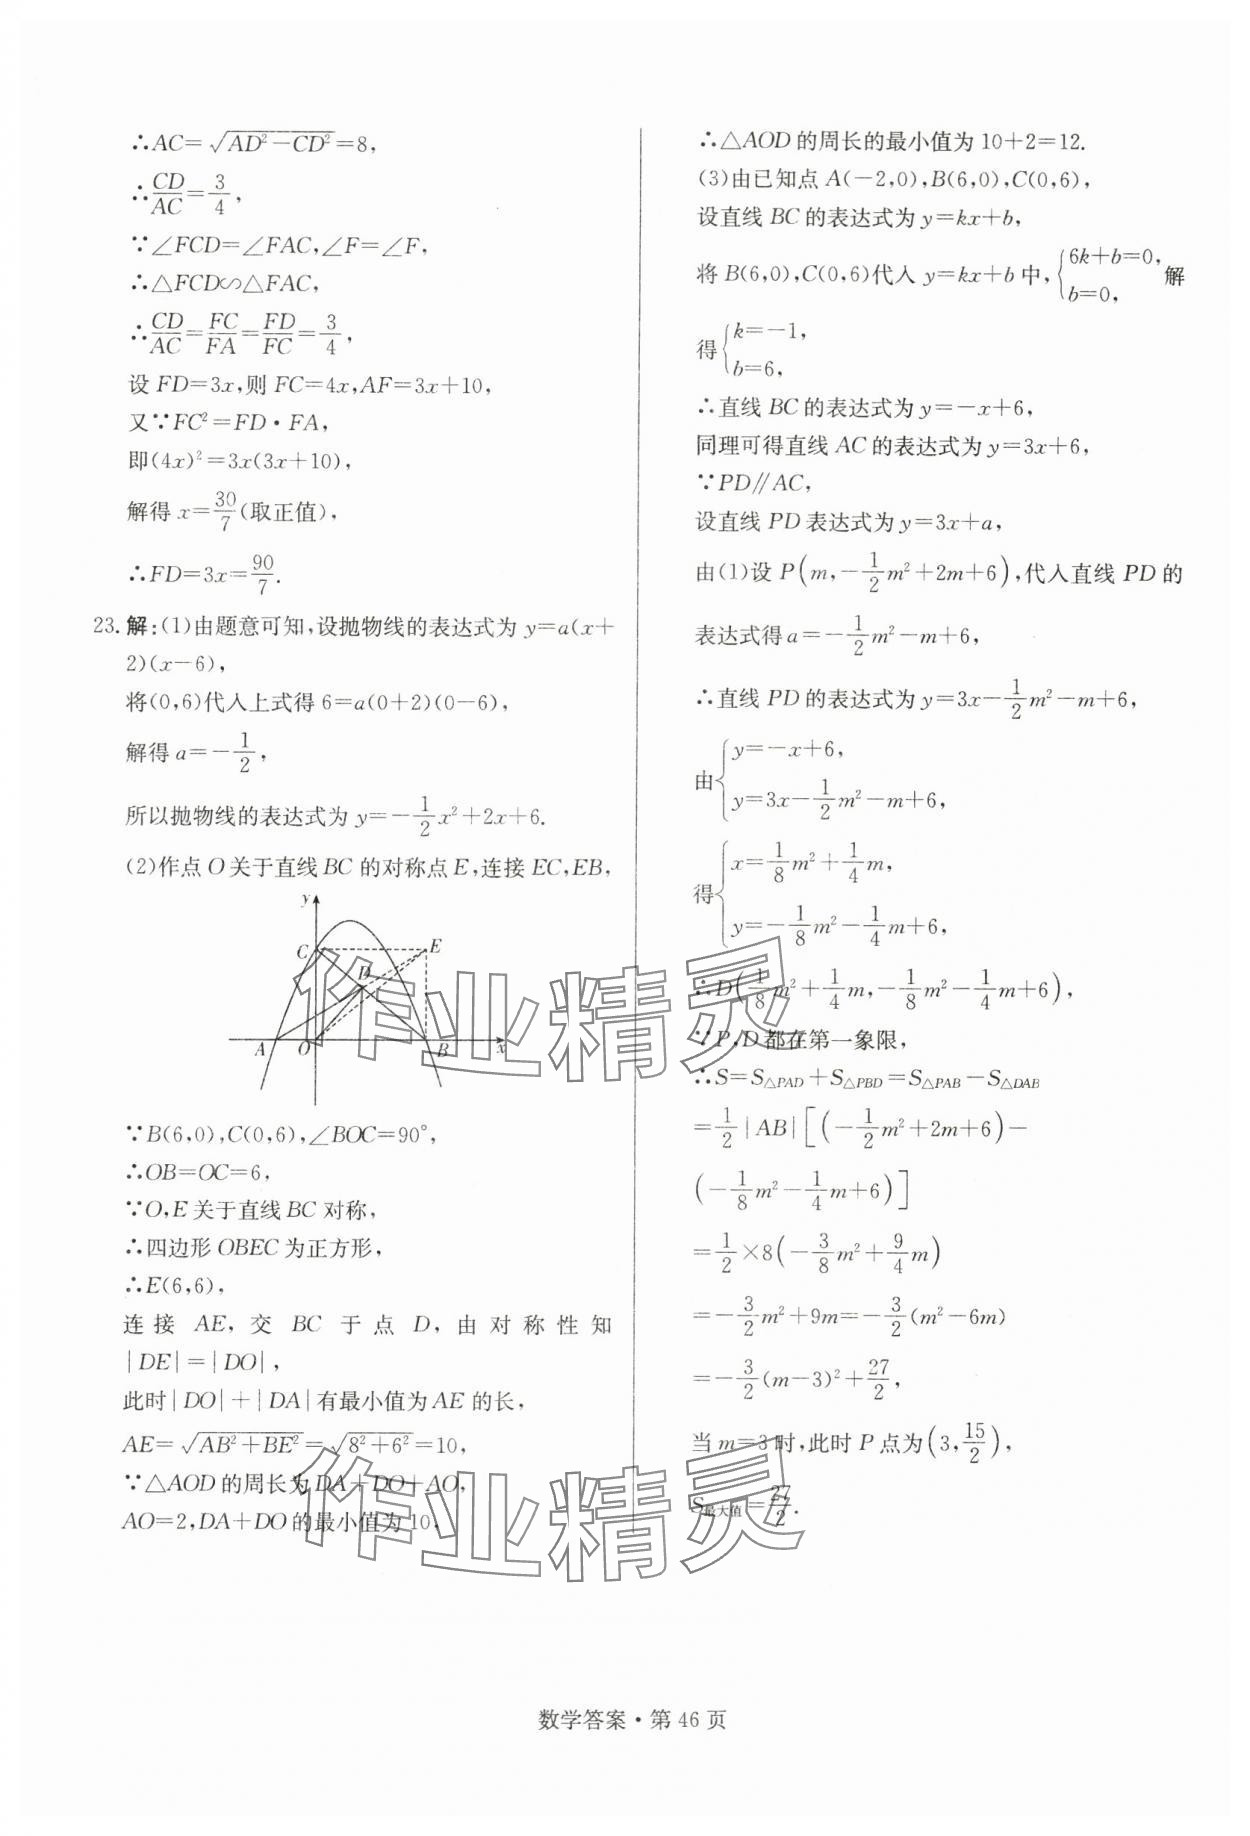 ∴AC=√(AD²−CD²)=8,
∴CD/AC=3/4,
∵∠FCD=∠FAC,∠F=∠F,
∴△FCD∽△FAC,
∴CD/AC=FC/FA=FD/FC=3/4,
设 FD=3x,则 FC=4x,AF=3x+10,
又∵FC²=FD·FA,
即(4x)²=3x(3x+10),
解得 x=30/7(取正值),
∴FD=3x=90/7.
23.解:(1)由题意可知,设抛物线的表达式为 y=a(x+
2)(x−6),
将(0,6)代入上式得 6=a(0+2)(0−6),
解得 a=−1/2,
所以抛物线的表达式为 y=−1/2x²+2x+6.
(2)作点 O 关于直线 BC 的对称点 E,连接 EC,EB,
y
C
E
D
A
O
B
x
∵B(6,0),C(0,6),∠BOC=90°,
∴OB=OC=6,
∵O,E 关于直线 BC 对称,
∴四边形 OBEC 为正方形,
∴E(6,6),
连接 AE,交 BC 于点 D,由对称性知
|DE|=|DO|,
此时|DO|+|DA|有最小值为 AE 的长,
AE=√(AB²+BE²)=√(8²+6²)=10,
∵△AOD 的周长为 DA+DO+AO,
AO=2,DA+DO 的最小值为 10,
∴△AOD 的周长的最小值为 10+2=12.
(3)由已知点 A(−2,0),B(6,0),C(0,6),
设直线 BC 的表达式为 y=kx+b,
将 B(6,0),C(0,6)代入 y=kx+b 中,{6k+b=0, b=0, 解
得{k=−1, b=6,
∴直线 BC 的表达式为 y=−x+6,
同理可得直线 AC 的表达式为 y=3x+6,
∵PD∥AC,
设直线 PD 表达式为 y=3x+a,
由(1)设 P(m,−1/2m²+2m+6),代入直线 PD 的
表达式得 a=−1/2m²−m+6,
∴直线 PD 的表达式为 y=3x−1/2m²−m+6,
由{y=−x+6, y=3x−1/2m²−m+6,
得{x=1/8m²+1/4m, y=−1/8m²−1/4m+6,
∴D(1/8m²+1/4m,−1/8m²−1/4m+6),
∵P,D 都在第一象限,
∴S=S△PAD+S△PBD=S△PAB−S△DAB
=1/2|AB|[(−1/2m²+2m+6)−
(−1/8m²−1/4m+6)]
=1/2×8(−3/8m²+9/4m)
=−3/2m²+9m=−3/2(m²−6m)
=−3/2(m−3)²+27/2,
当 m=3 时,此时 P 点为(3,15/2),
S最大值=27/2.
作业精灵
作业精灵
数学答案·第 46 页